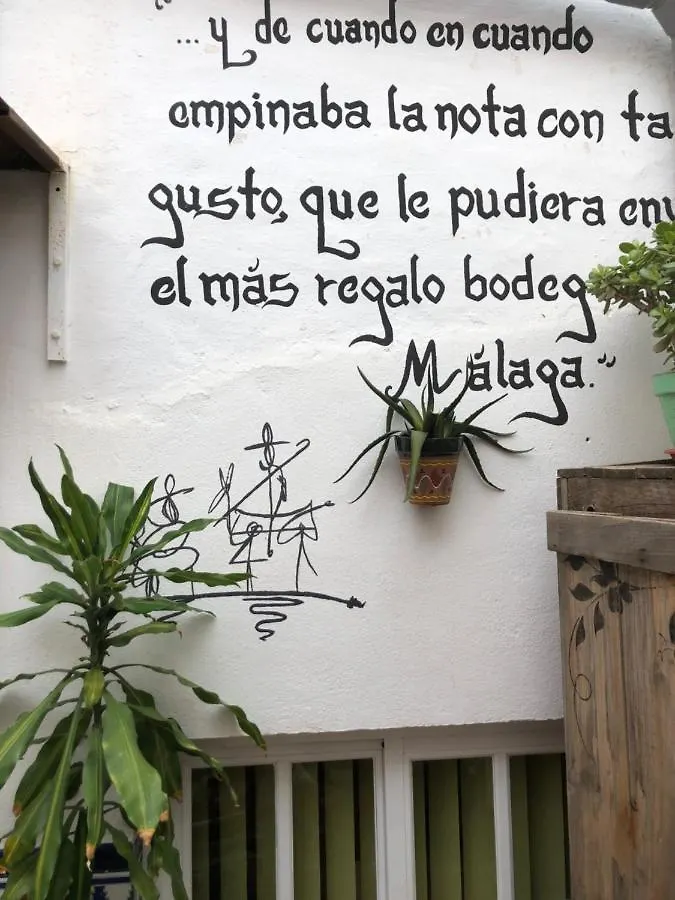 "...y de cuando en cuando
empinaba la nota con ta
gusto, que le pudiera env
el más regalo bodeg
Málaga."